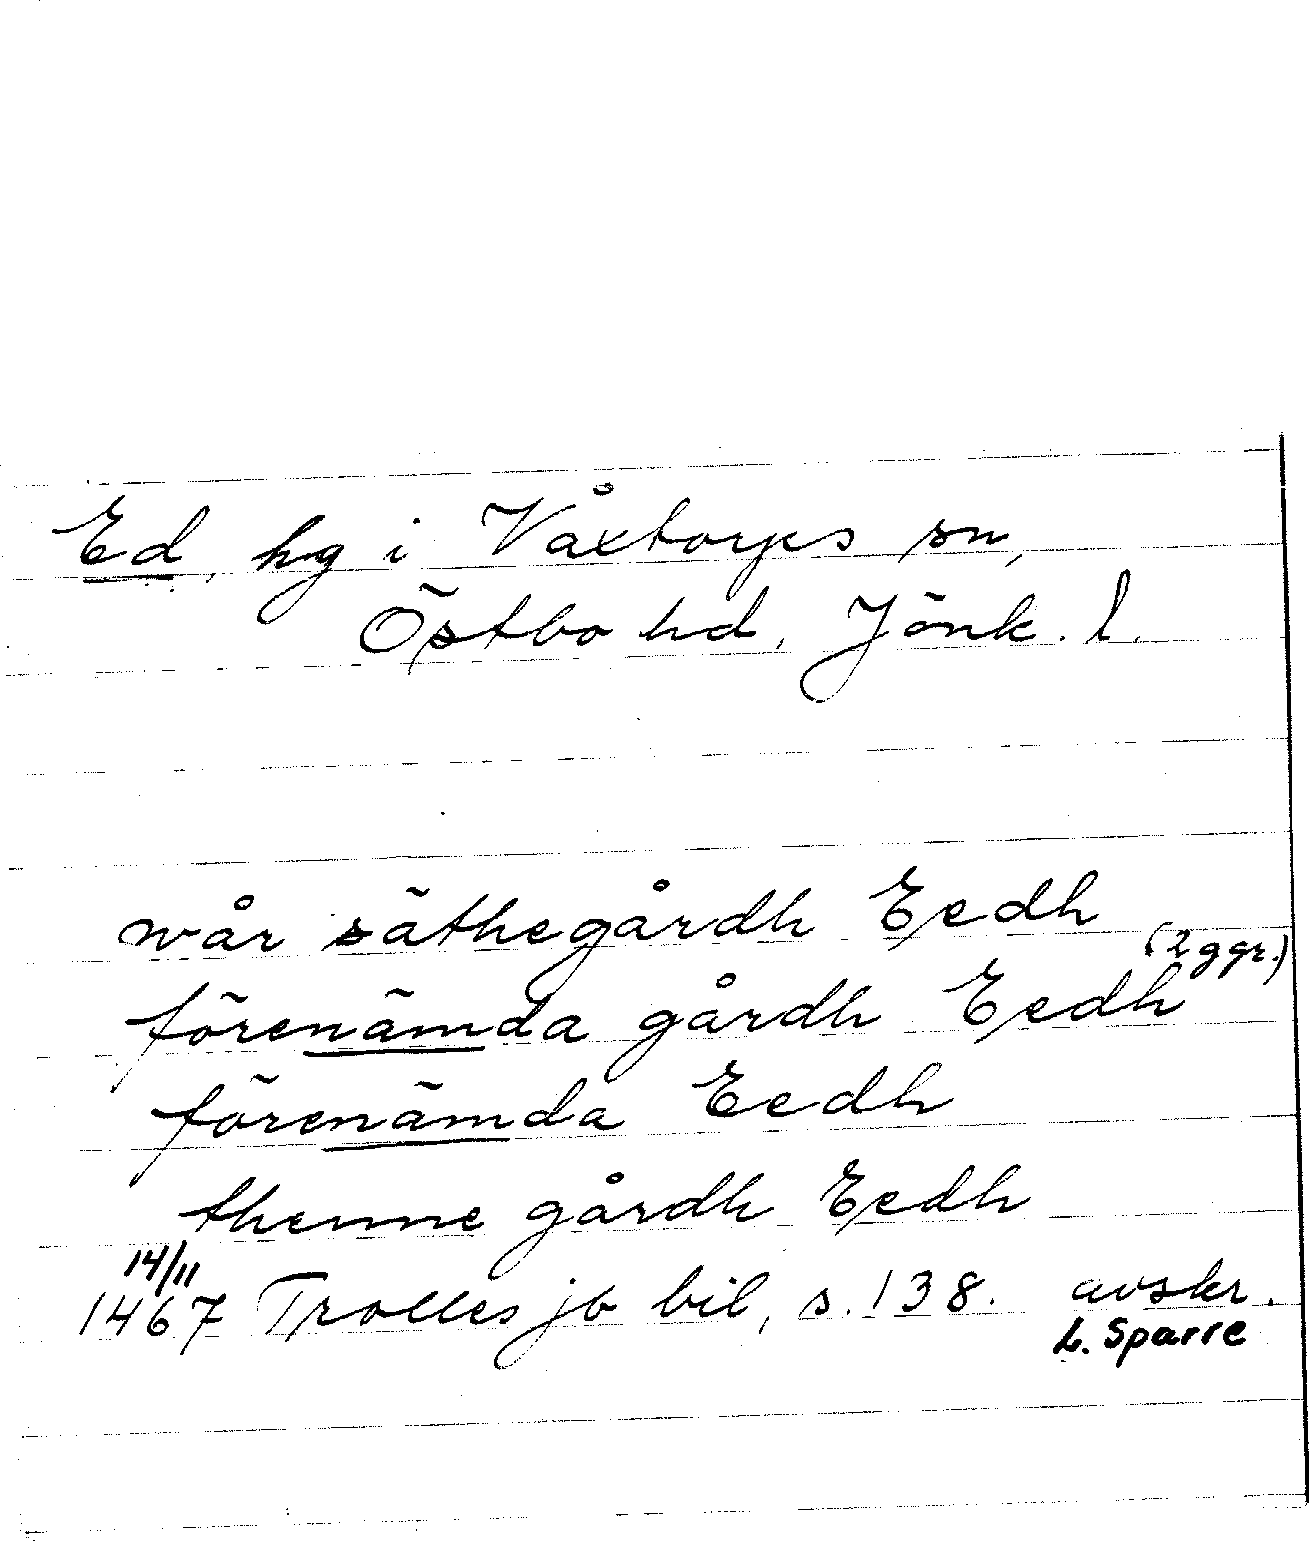 Ed, hg i Våxtorps sn,
Östbo hd, Jönk. l.
wår säthegårdh Eedh
(2 ggr.)
förenämda gårdh Eedh
förenämda Eedh
thenne gårdh Eedh
14/11
1467 Trolles jb bil, s. 138. avskr.
L. Sparre